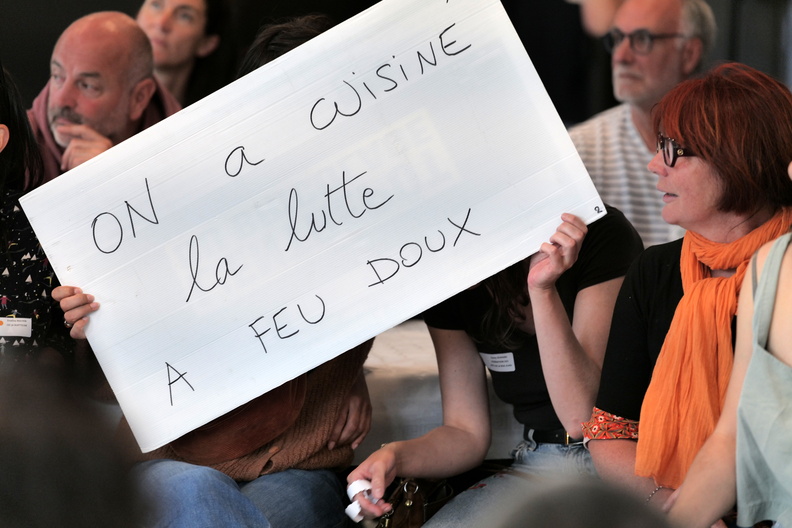 ON a CUISINÉ
la lutte
A FEU DOUX
2